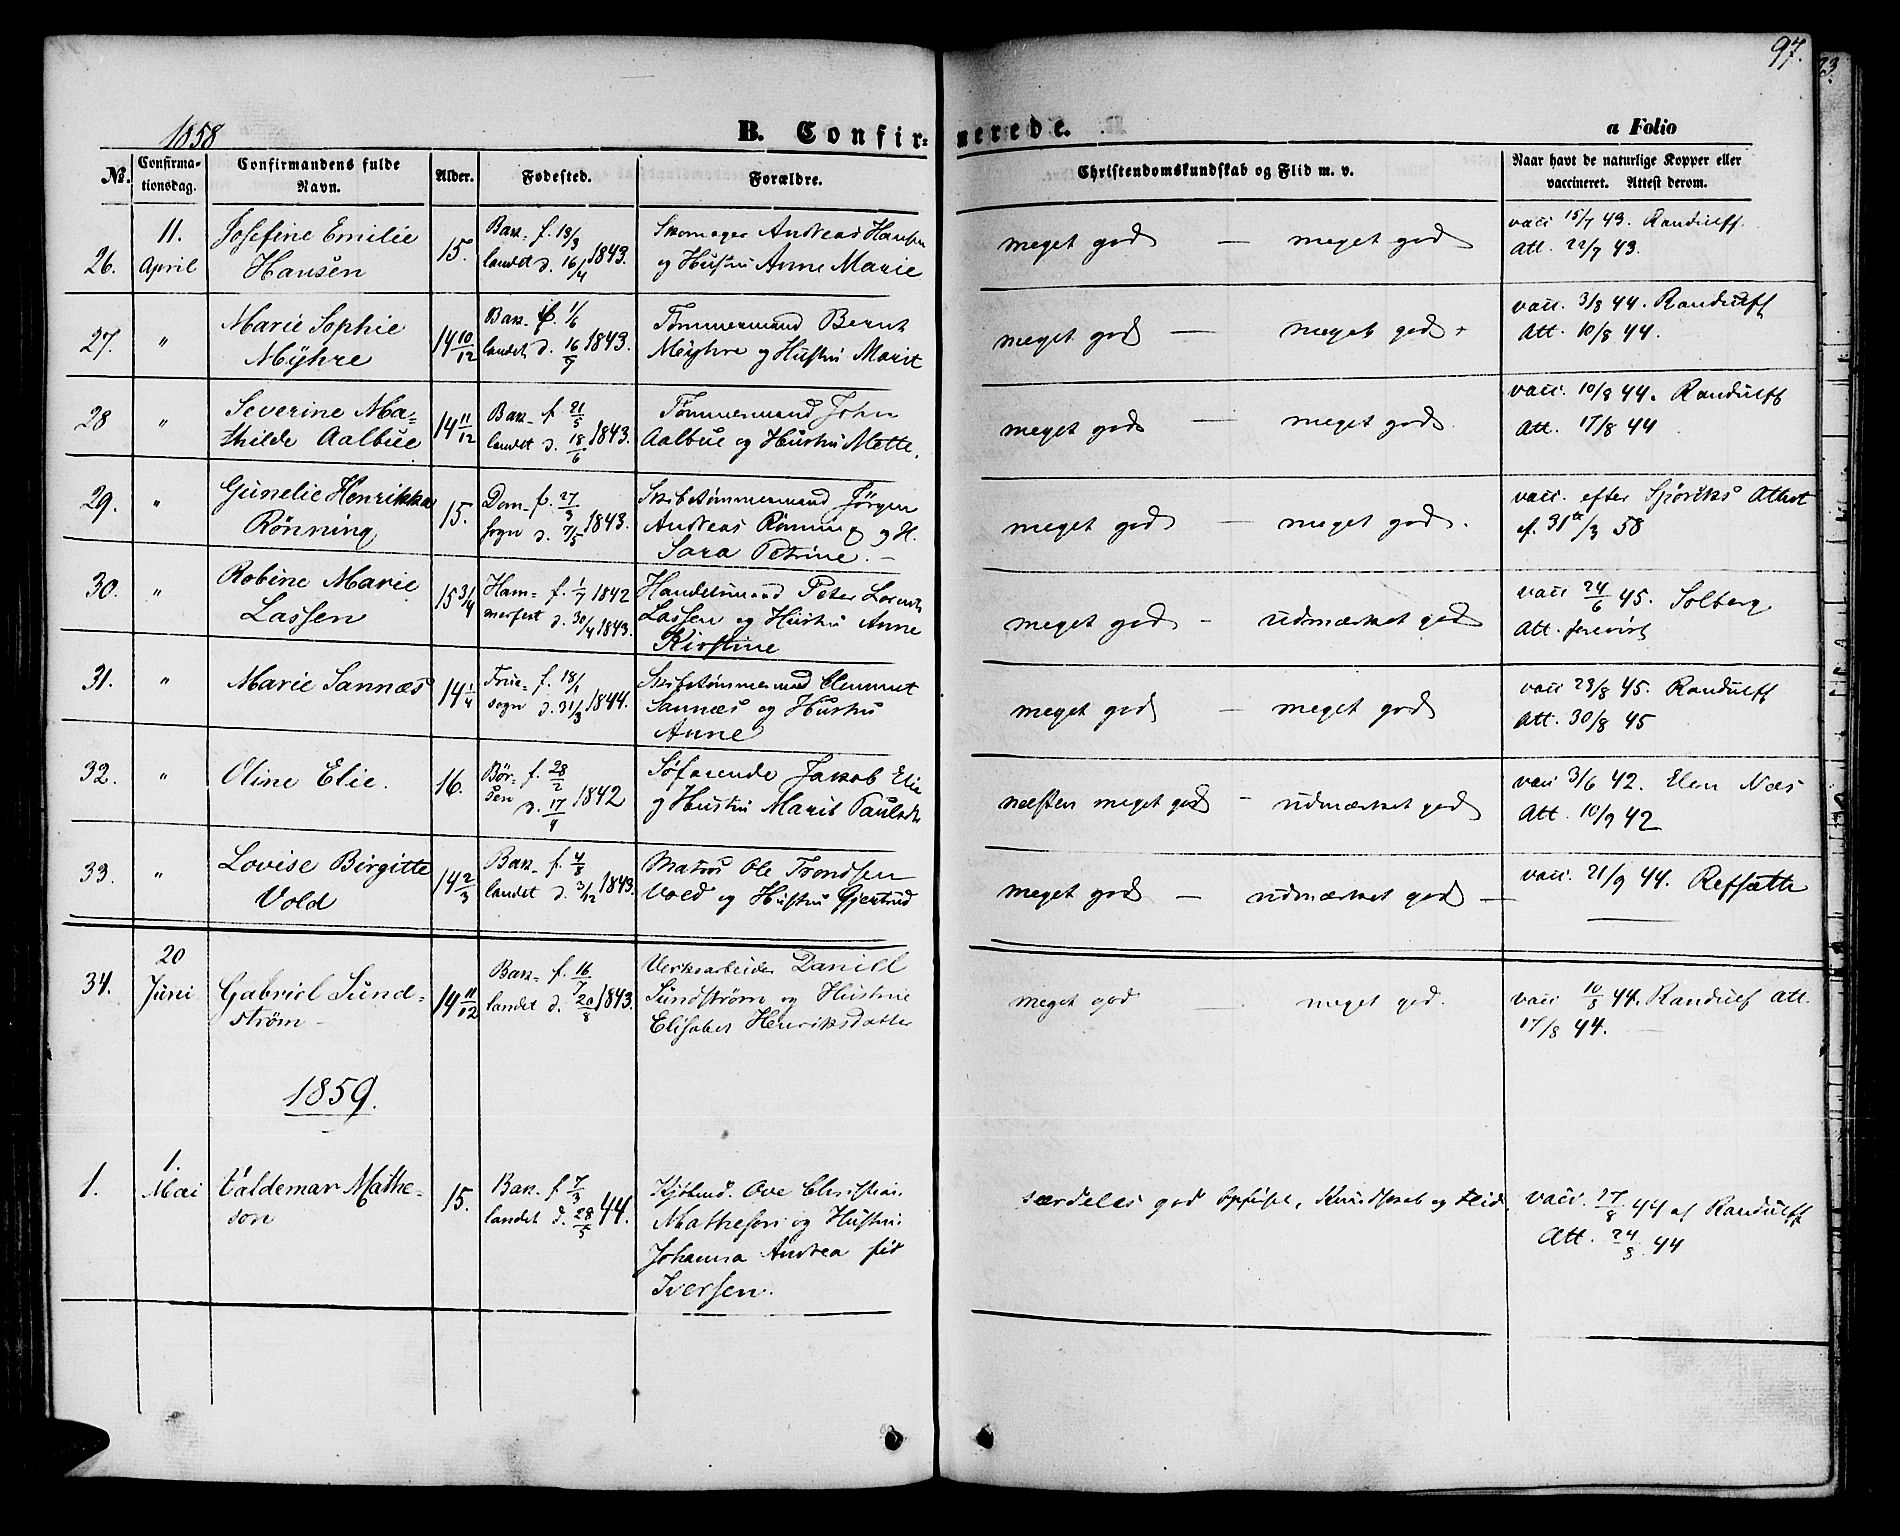 97.
1858
B. Confir=
nerede.
a Folio
No.
Confirma-
tionsdag.
Confirmandens fulde
Navn.
Alder.
Fødested.
Forældre.
Christendomskundskab og Flid m. v.
Naar havt de naturlige Kopper eller
vaccineret. Attest derom.
26.
11.
April
Josefine Emilie
Hansen
15.
Bak- f. 18/3
landet d. 16/4 1843.
Skomager Andreas Hansen
og Hustru Anne Marie
meget god — meget god
vacc 15/7 43. Randulff.
Att. 22/7 43.
27. "
Marie Sophie
Myhre
14 10/12
Bak- f. 1/6
landet d. 16/7 1843.
Tømmermand Bernt
Meyhre og Hustru Marit
meget god — meget god
vacc. 3/8 44. Randulff
Att. 10/8 44.
28 "
Severine Ma=
thilde Aalbue
14 11/12
Bak- f. 21/5
landet d. 18/6 1843.
Tømmermand John
Aalbue og Hustru Mette.
meget god — meget god.
vacc. 10/8 44. Randulff
Att. 17/8 44
29. "
Gunelie Henrikka
Rönning
15.
Dom- f. 27/3
sogn d. 7/5 1843.
Skibstømmermand Jörgen
Andreas Rönning og H.
Sara Petrine. —
meget god — meget god.
vacc. efter Attest
af. 31te/3 58
30. "
Robine Marie
Lassen
15 3/4
Ham= f. 1/7 1842
merfest d. 30/4 1843.
Handelsmand Peter Lorentz
Lassen og Hustru Anne
Kirstine
meget god - udmærket god
vacc 24/6 45. Solberg
Att. forevist
31. "
Marie Sannæs
14 1/4
Frue- f. 18/1
sogn d. 31/3 1844.
Skibstømmermand Clemmet
Sannæs og Hustru
Anne
meget god — meget god
vacc 23/8 45. Randulff
Att. 30/8 45
32. "
Oline Elie.
16.
Bör- f. 28/2
sen d. 17/4 1842
Søfarende Jakob Elie
og Hustru Marit Paulsdr
næsten meget god - udmærket god
vacc 3/6 42. Elen Næs
Att. 10/9 42
33. "
Lovise Birgitte
Vold
14 2/3
Bak- f. 4/8
landet d. 3/12 1843.
Matros Ole Trondsen
Vold og Hustru Gjertrud
meget god — udmærket god —
vacc. 21/9 44. Refsætte
34.
20
Juni
Gabriel Sund=
ström -
14 11/12
Bak- f. 16/7
landet d. 20/8 1843.
Verksarbeider Daniel
Sundström og Hustrue
Elisabet Henriksdatter
meget god — meget god.
vacc 10/8 44. Randulf Att.
17/8 44.
1859.
1.
1.
Mai
Valdemar Mathe=
son
15.
Bak. f. 7/3
landet d. 28/5 44.
Kjøbmd. Ove Christian
Mathesen og Hustru
Johanna Andrea fød
Iversen.
særdeles god Opførsel, Kundskab og Flid.
vacc. 17/8 44 af Randulff
Att. 24/8 44